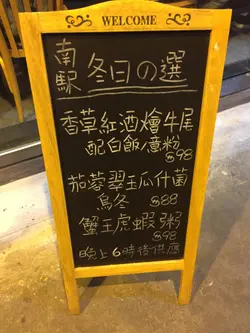 WELCOME
南駅 冬日の選
香草紅酒燴牛尾
配白飯/薯粉
$98
茄蓉翠玉瓜什菌
烏冬 $88
蟹王虎蝦粥
$98
晚上6時後供應